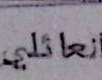 انعائلي